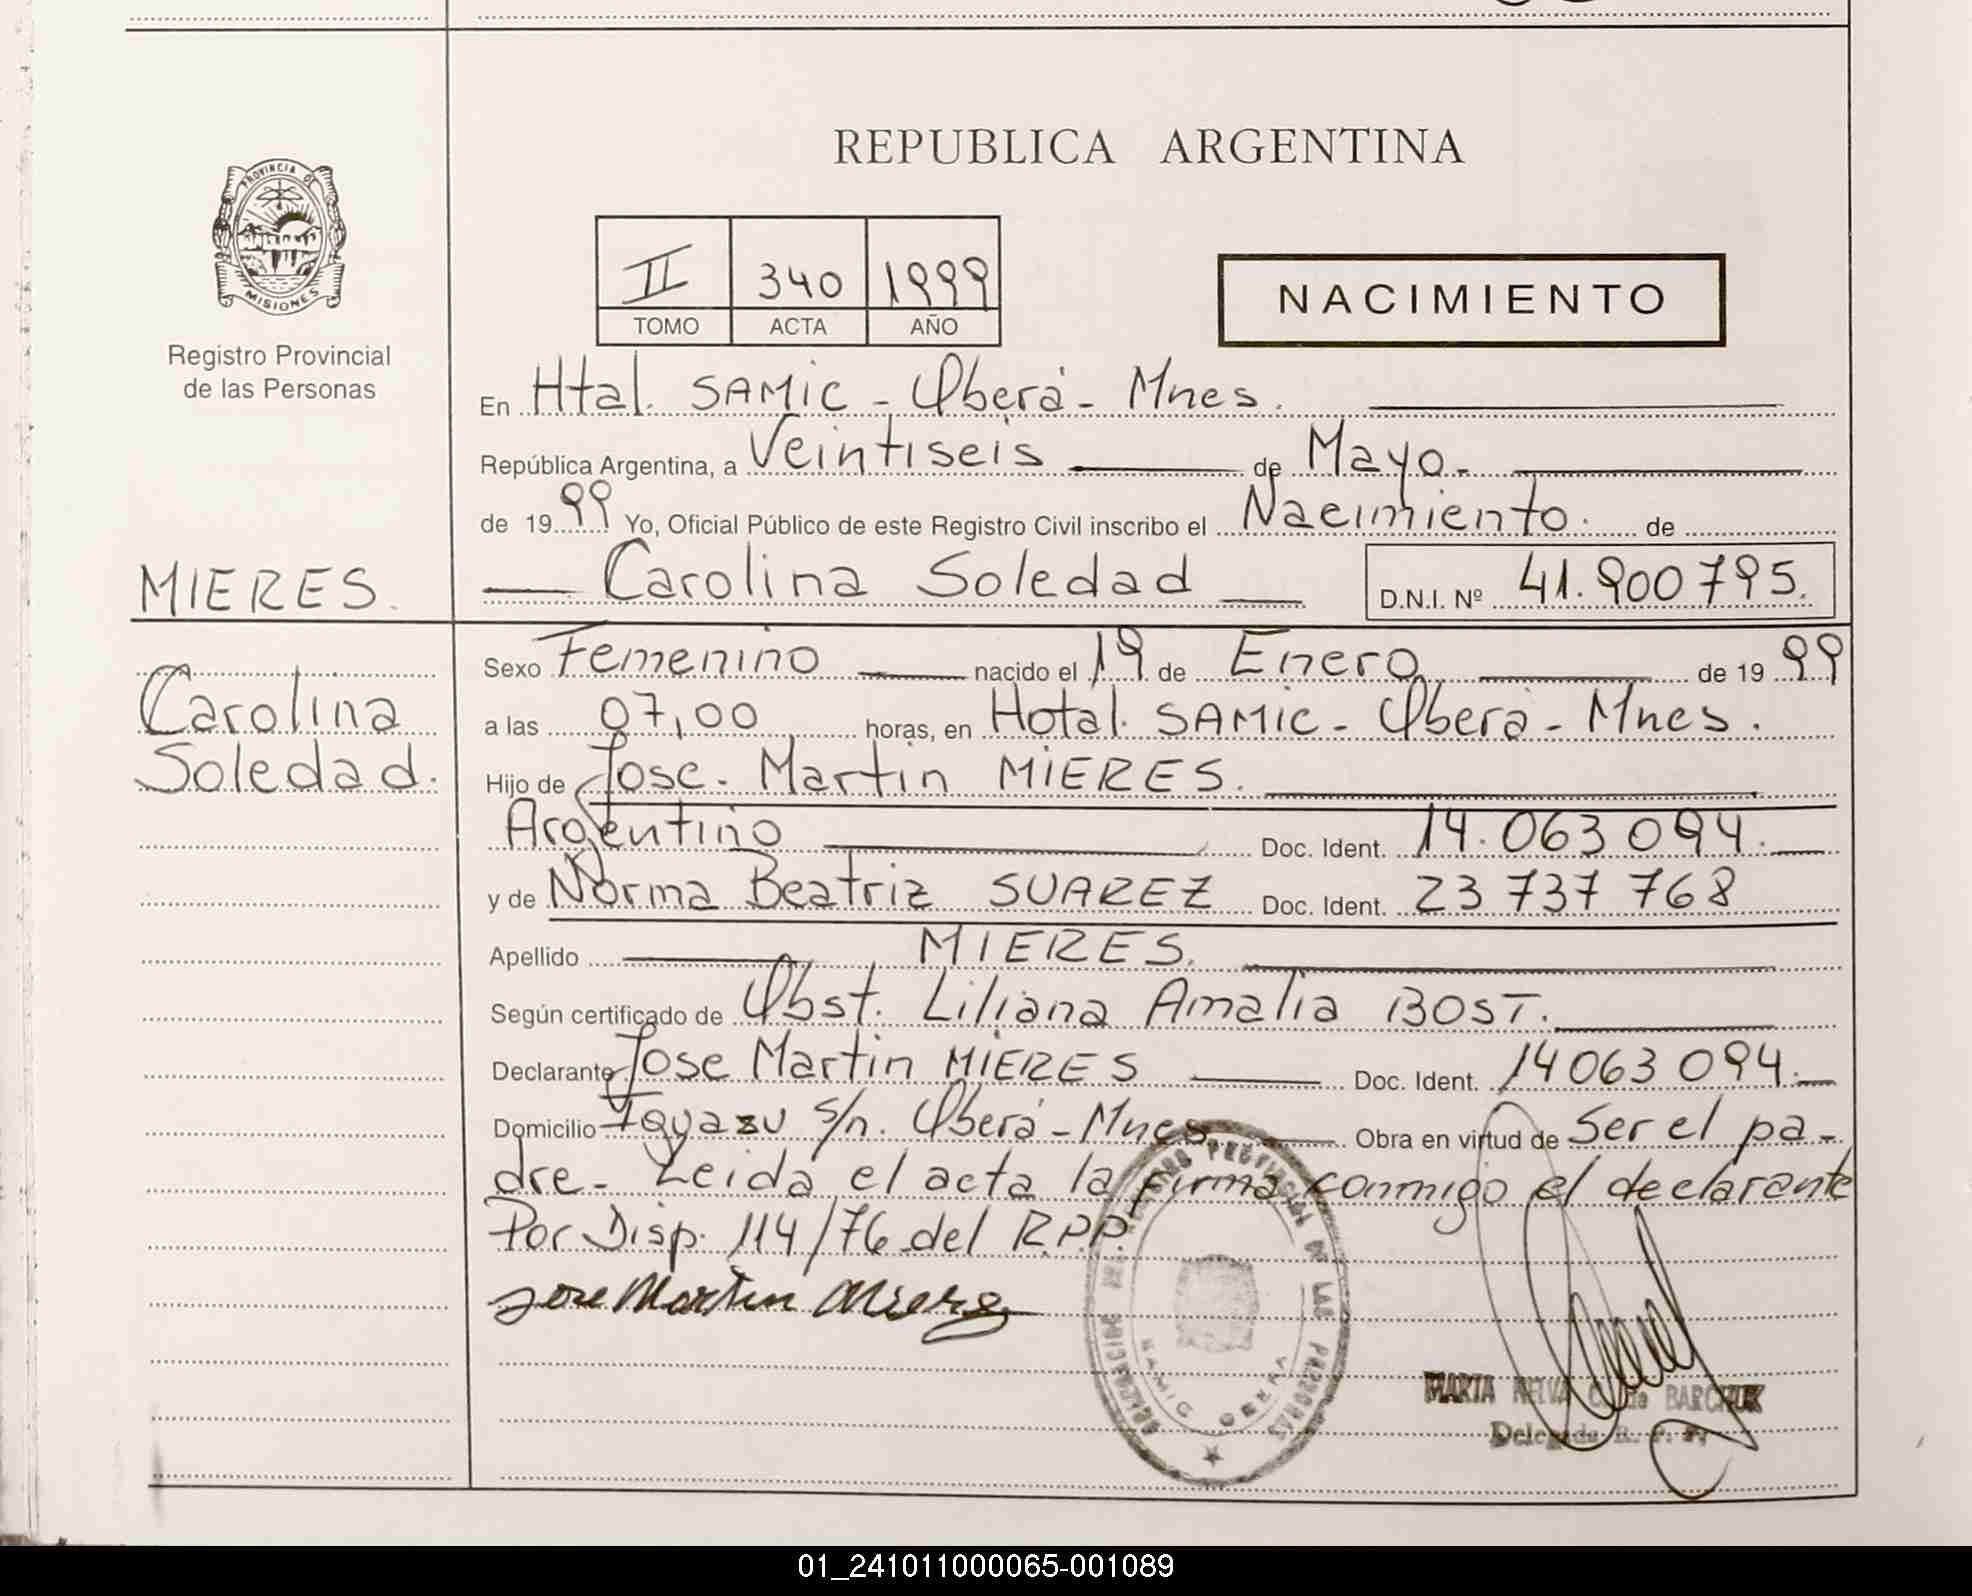 REPUBLICA ARGENTINA
PROVINCIA DE
MISIONES
Registro Provincial
de las Personas
II 340 1999
TOMO ACTA AÑO
NACIMIENTO
En Htal. SAMIC - Oberá - Mnes.
República Argentina, a Veintiseis de Mayo.
de 1999 Yo, Oficial Público de este Registro Civil inscribo el Nacimiento. de
MIERES.
Carolina Soledad D.N.I. Nº 41.900795.
Carolina
Soledad.
Sexo Femenino nacido el 19 de Enero de 1999
a las 07,00 horas, en Hotal. SAMIC - Oberá - Mnes.
Hijo de Jose Martin MIERES.
Argentino Doc. Ident. 14.063094.
y de Norma Beatriz SUAREZ Doc. Ident. 23 737 768
Apellido MIERES.
Según certificado de Obst. Liliana Amalia BOST.
Declarante Jose Martin MIERES Doc. Ident. 14063094.
Domicilio Iguazu s/n. Oberá - Mnes Obra en virtud de Ser el pa-
dre - Leida el acta la firma conmigo el declarante
Por Disp. 114/76 del R.P.P.
Jose Martin Mieres
PROVINCIAL DE LAS PERSONAS
SAMIC OBERA
MARTA de BARCHUK
Delegada R. P. P.
01_241011000065-001089